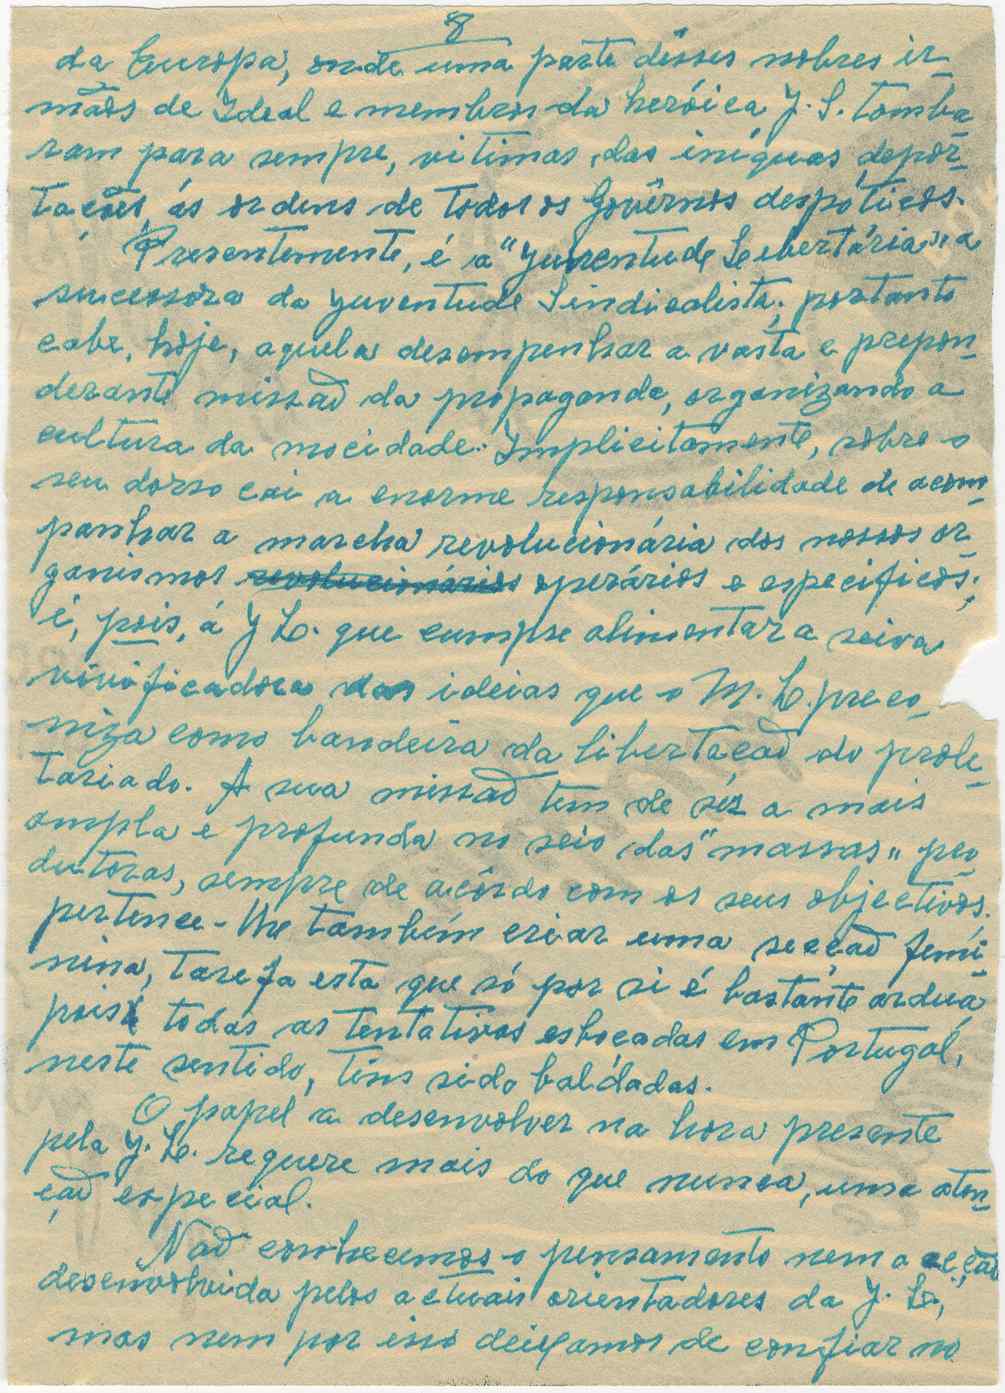 8
da Europa, onde uma parte dêsses nobres ir-
mãos de Ideal e membros da heróica J. S. tomba-
ram para sempre, vitimas das iníquas depor-
tações, ás ordens de todos os Govêrnos despóticos.
Presentemente, é a "Juventude Libertária" a
sucessora da Juventude Sindicalista; portanto
cabe, hoje, aquela desempenhar a vasta e prepon-
derante missão da propaganda, organizando a
cultura da mocidade. Implicitamente, sobre o
seu dorso cai a enorme responsabilidade de acom-
panhar a marcha revolucionária dos nossos or-
ganismos revolucionários operários e especificos;
é, pois, á J L. que cumpre alimentar a seiva
vivificadora das ideias que o M. L. preco-
niza como bandeira da libertação do prole-
tariado. A sua missão tem de ser a mais
ampla e profunda no seio das "massas" pro-
dutoras, sempre de acôrdo com os seus objectivos.
pertence-lhe também criar uma secção femi-
nina, tarefa esta que só por si é bastante ardua
pois todas as tentativas esboçadas em Portugal,
neste sentido, têns sido baldadas.
O papel a desenvolver na hora presente
pela J. L. requere mais do que nunca, uma aten-
ção especial.
Não conhecemos o pensamento nem a acção
desenvolvida pelos actuais orientadores da J. L.,
mas nem por isso deixamos de confiar no